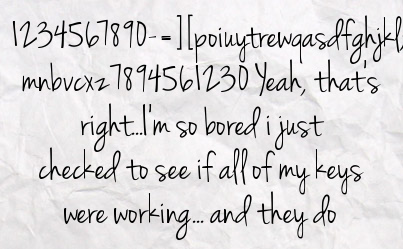 1234567890-=][poiuytrewqasdfghjkl
mnbvcxz7894561230 Yeah, that's
right...I'm so bored i just
checked to see if all of my keys
were working... and they do